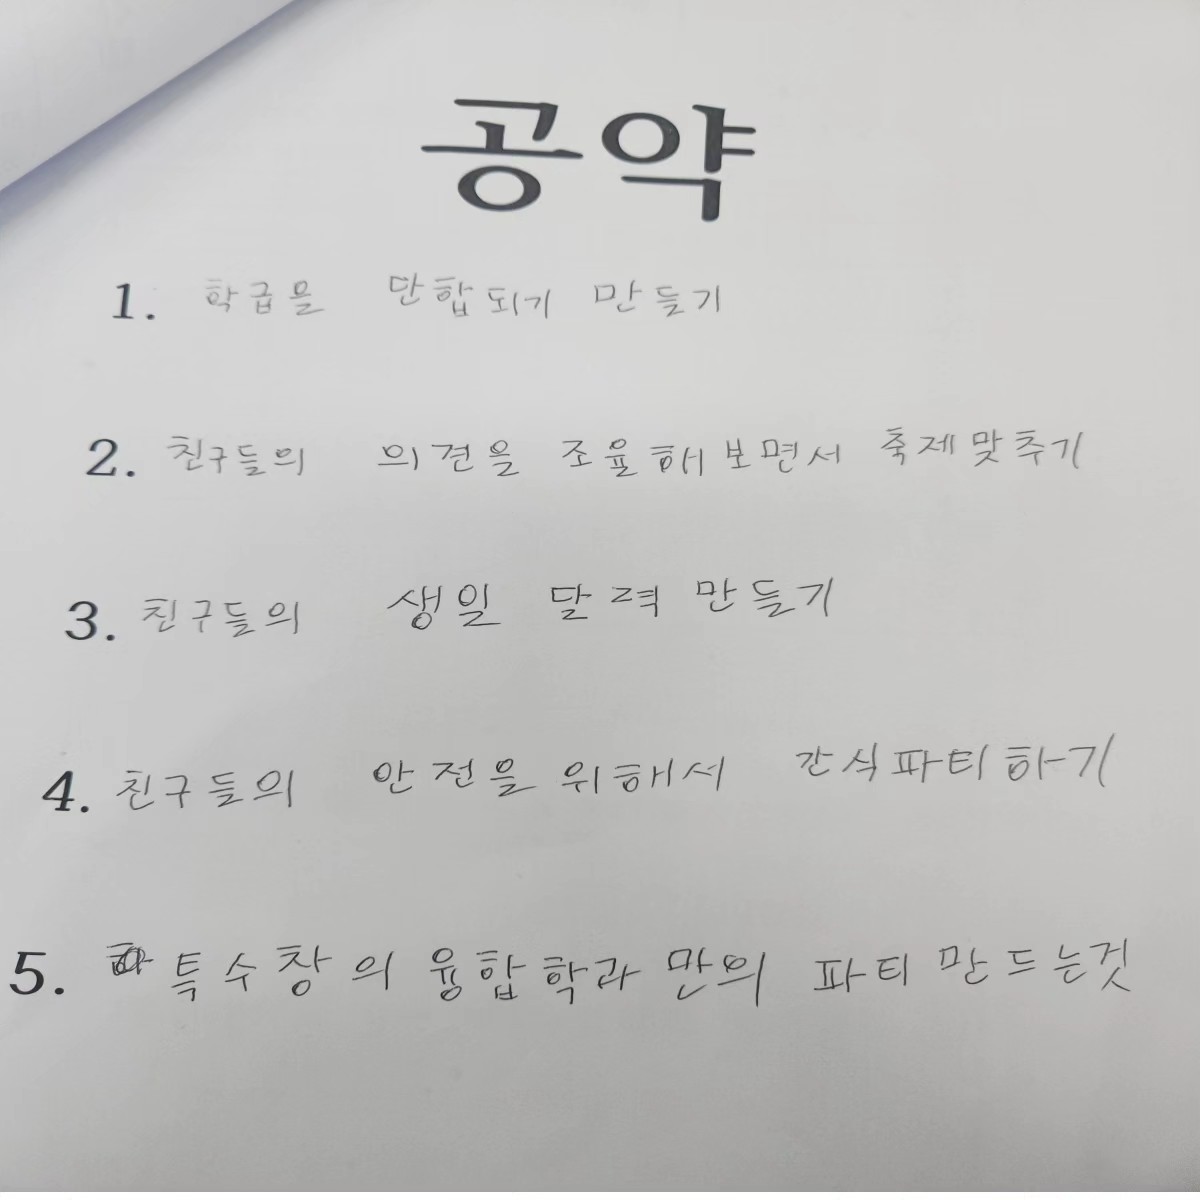 공약
1. 학급을 단합되기 만들기
2. 친구들의 의견을 조율해보면서 축제맞추기
3. 친구들의 생일 달력 만들기
4. 친구들의 안전을 위해서 간식파티하기
5. 특수창의융합학과만의 파티 만드는것